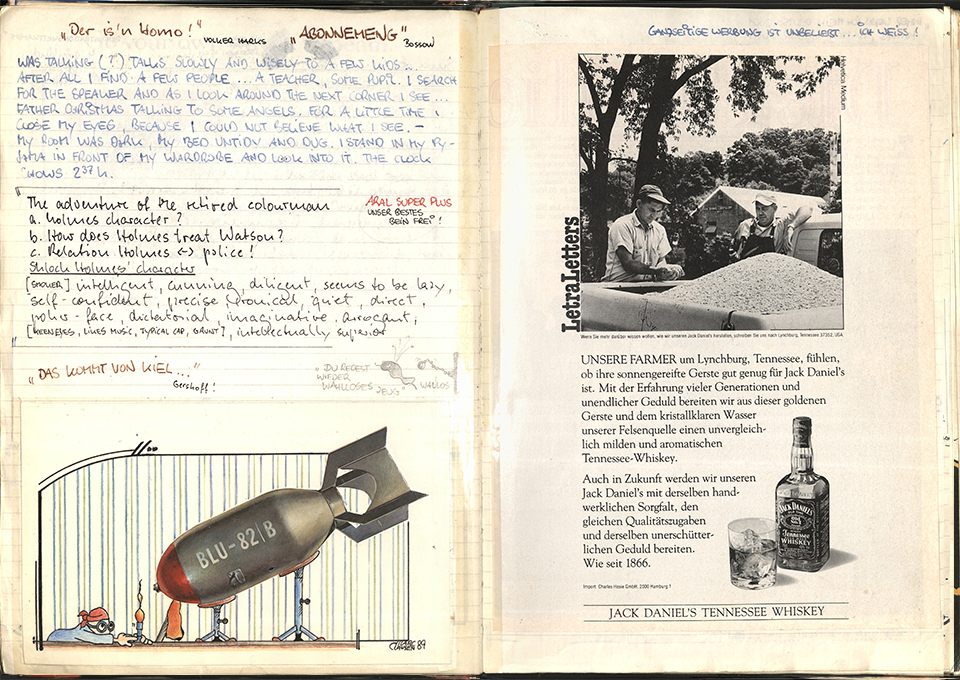 „Der is'n Homo!"
VOLKER MARKS
„ABONNEMENG"
Bossow
WAS TALKING (?) TALKS SLOWLY AND WISELY TO A FEW KIDS...
AFTER ALL I FIND A FEW PEOPLE... A TEACHER, SOME PUPIL. I SEARCH
FOR THE SPEAKER AND AS I LOOK AROUND THE NEXT CORNER I SEE...
FATHER CHRISTMAS TALKING TO SOME ANGELS. FOR A LITTLE TIME I
CLOSE MY EYES, BECAUSE I COULD NOT BELIEVE WHAT I SEE. –
MY ROOM WAS DARK, MY BED UNTIDY AND DUG. I STAND IN MY PY-
JAMA IN FRONT OF MY WARDROBE AND LOOK INTO IT. THE CLOCK
SHOWS 2³⁷ h.
The adventure of the retired colourman
a. Holmes character?
b. How does Holmes treat Watson?
c. Relation Holmes ↔ police!
ARAL SUPER PLUS
UNSER BESTES
BEIN FREI!
Shlock Holmes' character
[SMOKER] intelligent, cunning, diligent, seems to be lazy,
self-confident, precise, ironical, quiet, direct,
poker-face, dictatorial, imaginative, arrogant,
[KEEN EYES, LIKES MUSIC, TYPICAL CAP, GAUNT], intellectually superior
„DAS KOMMT VON KIEL..."
Gershoff!
„DU REDEST
WIEDER
WAHLLOSES
ZEUG"
WAHLLOS
BLU-82/B
CLASEN 89
GANZSEITIGE WERBUNG IST UNBELIEBT... ICH WEISS!
Helvetica Medium
LetraLetters
Wenn Sie mehr darüber wissen wollen, wie wir unseren Jack Daniel's herstellen, schreiben Sie uns nach Lynchburg, Tennessee 37352, USA.
UNSERE FARMER um Lynchburg, Tennessee, fühlen,
ob ihre sonnengereifte Gerste gut genug für Jack Daniel's
ist. Mit der Erfahrung vieler Generationen und
unendlicher Geduld bereiten wir aus dieser goldenen
Gerste und dem kristallklaren Wasser
unserer Felsenquelle einen unvergleich-
lich milden und aromatischen
Tennessee-Whiskey.
Auch in Zukunft werden wir unseren
Jack Daniel's mit derselben hand-
werklichen Sorgfalt, den
gleichen Qualitätszugaben
und derselben unerschütter-
lichen Geduld bereiten.
Wie seit 1866.
JACK DANIEL'S
Tennessee
WHISKEY
Import: Charles Hosie GmbH, 2000 Hamburg 1
JACK DANIEL'S TENNESSEE WHISKEY